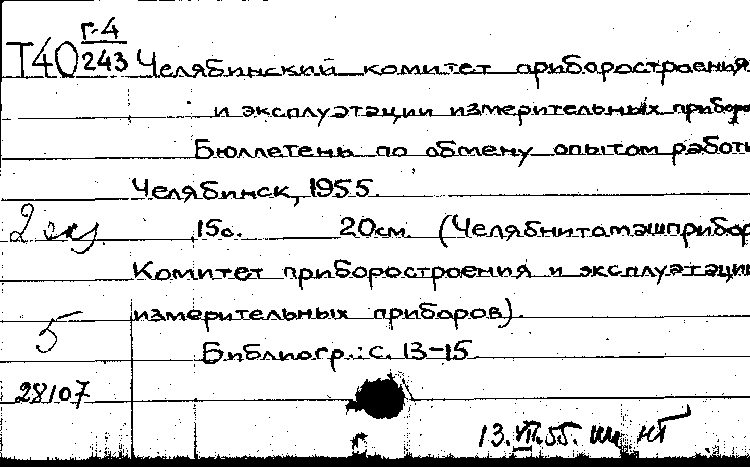 Т40 Г-4/243 Челябинский комитет приборостроения
и эксплуатации измерительных приборо
Бюллетень по обмену опытом работы
Челябинск, 1955.
2 экз. 15с. 20см. (Челябнитомашприбор
Комитет приборостроения и эксплуатации
измерительных приборов).
5
Библиогр.: с. 13-15
28107
13.VII.55. НТ